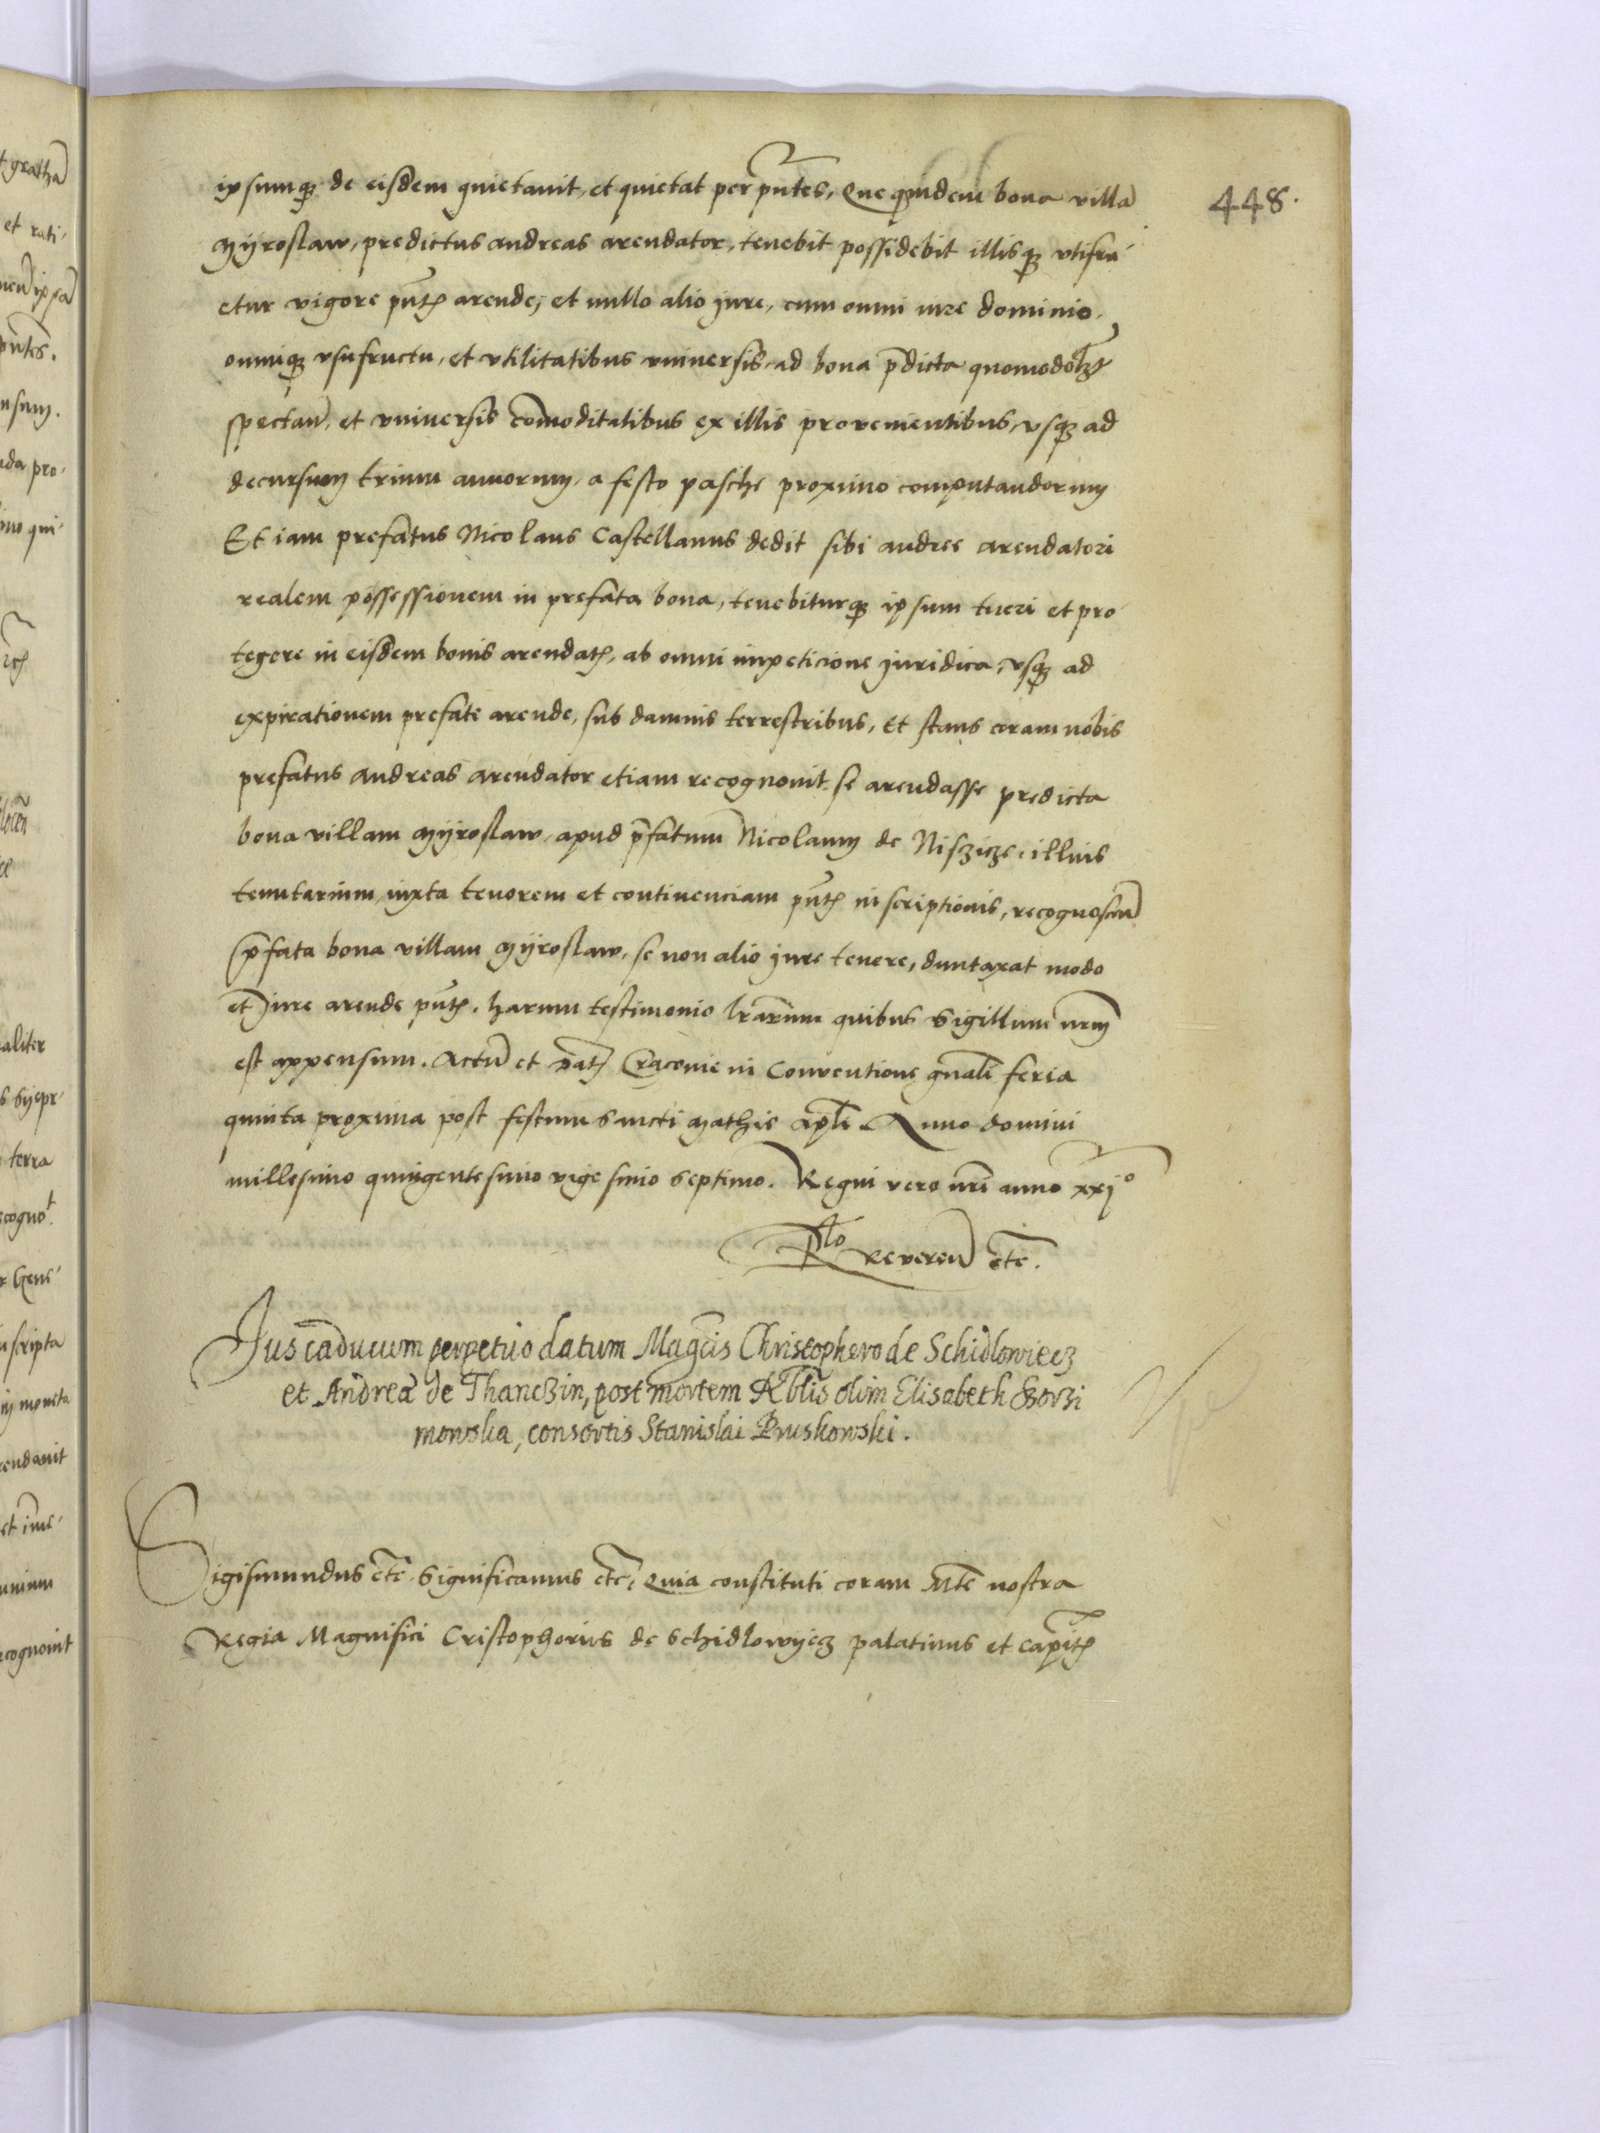 448.
ipsumq3 de eisdem quietauit, et quietat per pn̄tes, Que quidem bona villā
Myroslaw, predictus andreas arendator, tenebit possidebit illisq3 vtifru
etur vigore pn̄t) arende, et nullo alio jure, cum omni iure dominio,
omniq3 vsufructu, et vtilitatibus vniuersis, ad bona p̄dicta quomodolȝ
spectan̄, et vniuersis com̄oditatibus ex illis prouenientibus, vsq3 ad
decursum trium annorum, a festo pasche proximo computandorum
Et iam prefatus Nicolaus Castellanus dedit sibi andree arendatori
realem possessionem in prefata bona, tenebiturq3 ipsum tueri et pro
tegere in eisdem bonis arendat), ab omni impeticione juridica, vsq3 ad
expirationem prefate arende, sub damnis terrestribus, Et stans coram nobis
prefatus andreas arendator etiam recognouit se arendasse predicta
bona villam Myroslaw, apud p̄fatum Nicolaum de Nisczicze, illius
tenutarium, iuxta tenorem et continenciam pn̄t) inscriptionis, recognoscen̄
p̄fata bona villam Myroslaw, se non alio jure tenere, duntaxat modo
et Jure arende pn̄t). harum testimonio lrārum quibus Sigillum nrm̄
est appensum. Actū et Dat) Cracouie in Conuentione gn̄ali feria
quinta proxima post festum Sancti Mathie apl̄i Anno domini
millesimo quingentesimo vigesimo Septimo. Regni vero nrī anno xxjº
Rlo Reueren̄ etc̄.
Jus caducum perpetuo datum Magcis Christophero de Schidlowiecz
et Andreæ de Thanczin, post mortem Nblis olim Elisabeth Gorzi
mowska, consortis Stanislai Pruskowski.
Sigismundus etc̄ Significamus etc̄, Quia constituti coram Mte nostra
Regia Magnifici Cristophorus de Schidlowyecz palatinus et capit)